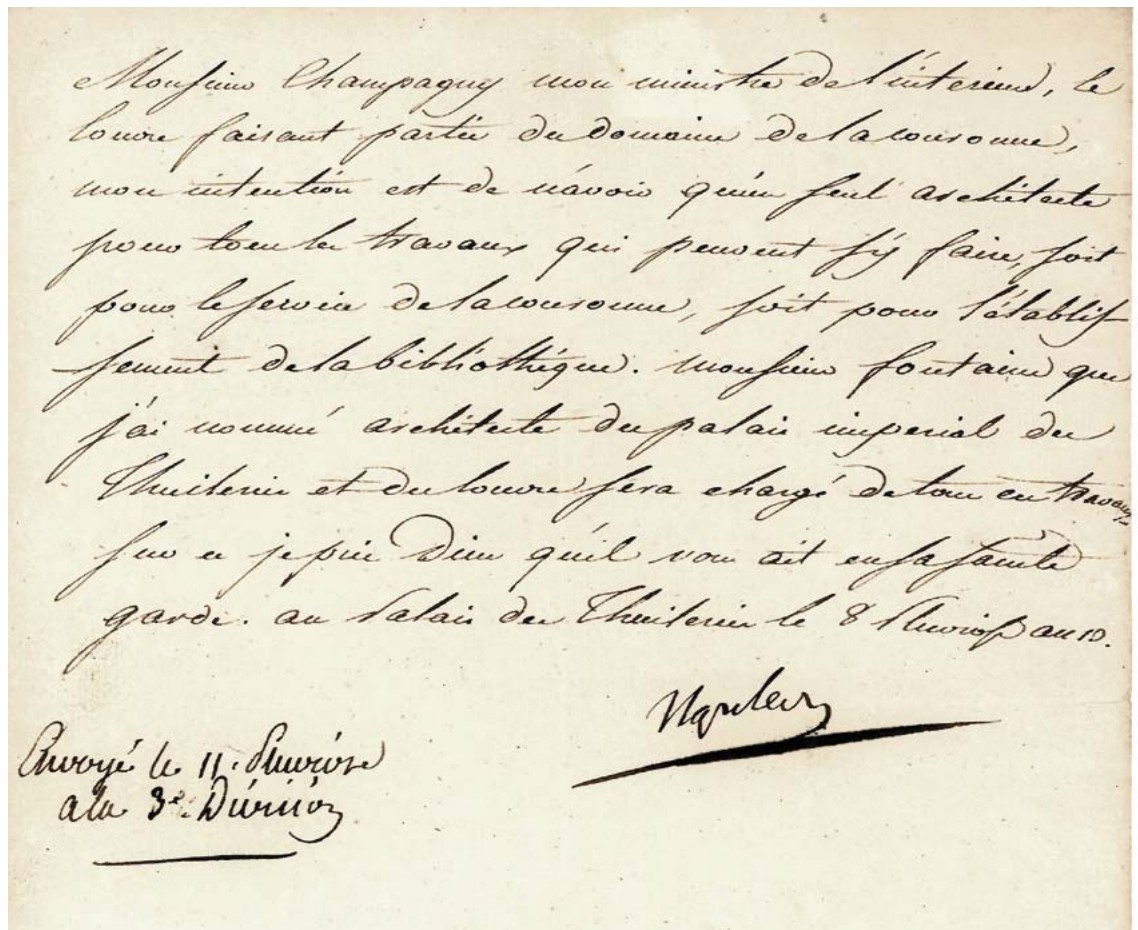 Monsieur Champagny mon ministre de l'interieur, le
louvre faisant partie du domaine de la couronne,
mon intention est de n'avoir qu'un seul architecte
pour tous les travaux qui peuvent s'y faire, soit
pour le service de la couronne, soit pour l'établis-
-sement de la bibliothéque. monsieur fontaine que
j'ai nommé architecte du palais imperial des
Thuileries et du louvre sera chargé de tous ces travaux
sur ce je prie Dieu qu'il vous ait en sa sainte
garde. au Palais des Thuileries le 8 Pluviose an 13.
Napoleon
Envoyé le 11. Pluviôse
a la 3e. Division